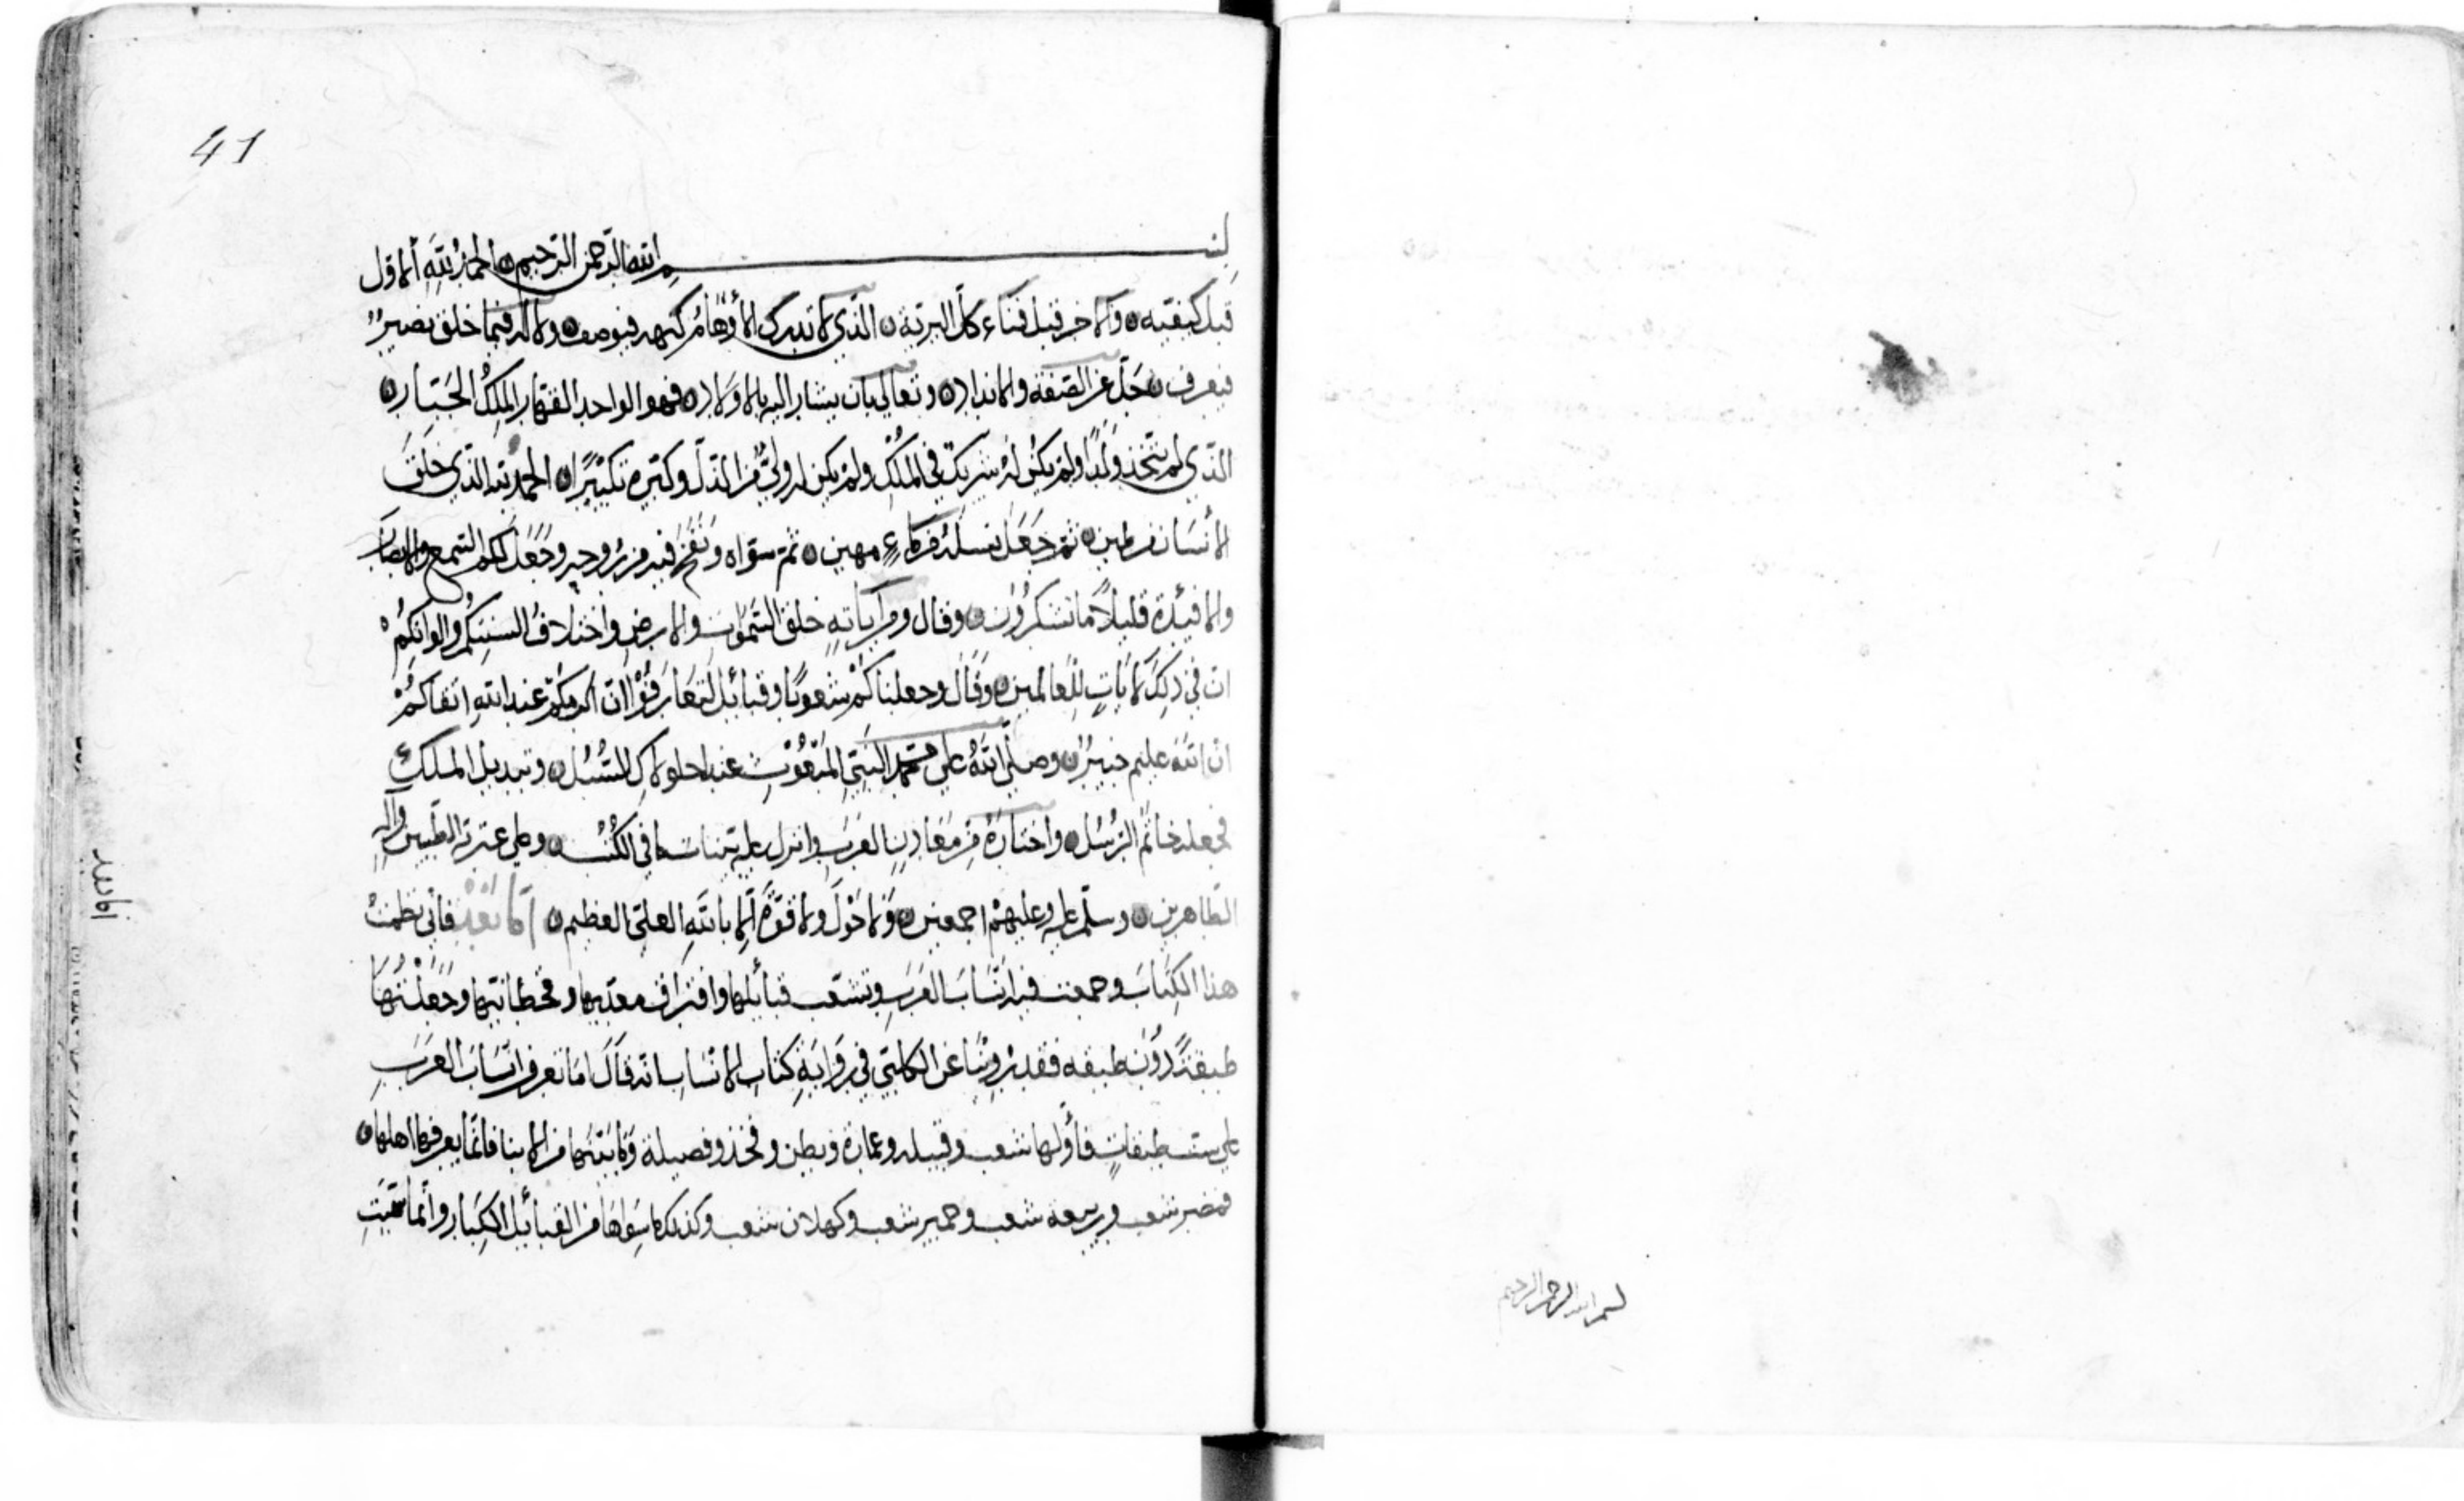 بسم الله الرحمن الرحيم
41
بسم الله الرحمن الرحيم الحمد لله الاول
قبل كيفيته والاخر قبل فناء كل البرية الذي لا تدرك الأوهام كنهه فيوصف ولا له فيما خلق نصير
فيعرف جل عن الصفة والانداد وتعالى بان يشار اليه بالاولاد فهو الواحد القهار الملك الجبار
الذي لم يتخذ ولدا ولم يكن له شريك في الملك ولم يكن له ولي من الذل وكبره تكبيرا الحمد لله الذي خلق
الانسان من طين ثم جعل نسله من ماء مهين ثم سواه ونفخ فيه من روحه وجعل لكم السمع والابصار
والافئدة قليلا ما تشكرون وقال ومن اياته خلق السموات والارض واختلاف السنتكم والوانكم
ان في ذلك لايات للعالمين وقال وجعلناكم شعوبا وقبائل لتعارفوا ان اكرمكم عند الله اتقاكم
ان الله عليم خبير وصلى الله على محمد النبي المبعوث عند للسبل وتبديل الملك
فجعله خاتم الرسل واختاره من معادن العرب وانزل عليه في الكتب وعلى عترته الطيبين واله
الطاهرين وسلم عليه وعليهم اجمعين ولا حول ولا قوة الا بالله العلي العظيم اما بعد فاني نظمت
هذا الكتاب وجمعت فيه انساب العرب وتشعب قبائلها وافتراق معديها وقحطانيها وجعلتها
طبقة دون طبقه فقد روينا عن الكلبي في رواية كتاب الانساب انه قال اما تعرف انساب العرب
على ست طبقات فأولها شعب وقبيله وعمارة وبطن وفخذ وفصيلة وما بينهما من الابنا فانما يعرفها اهلها
فمضر شعب وربيعه شعب وحمير شعب وكهلان شعب وكذلك ما سواها من القبائل الكبار وانما سميت